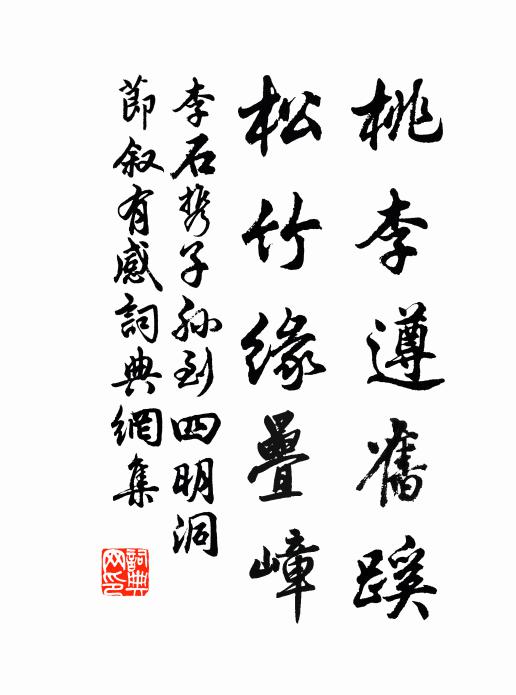 桃李遵舊蹊
松竹緣疊嶂
李石携子孫到四明洞
節叙有感詞典網集
詞典網印